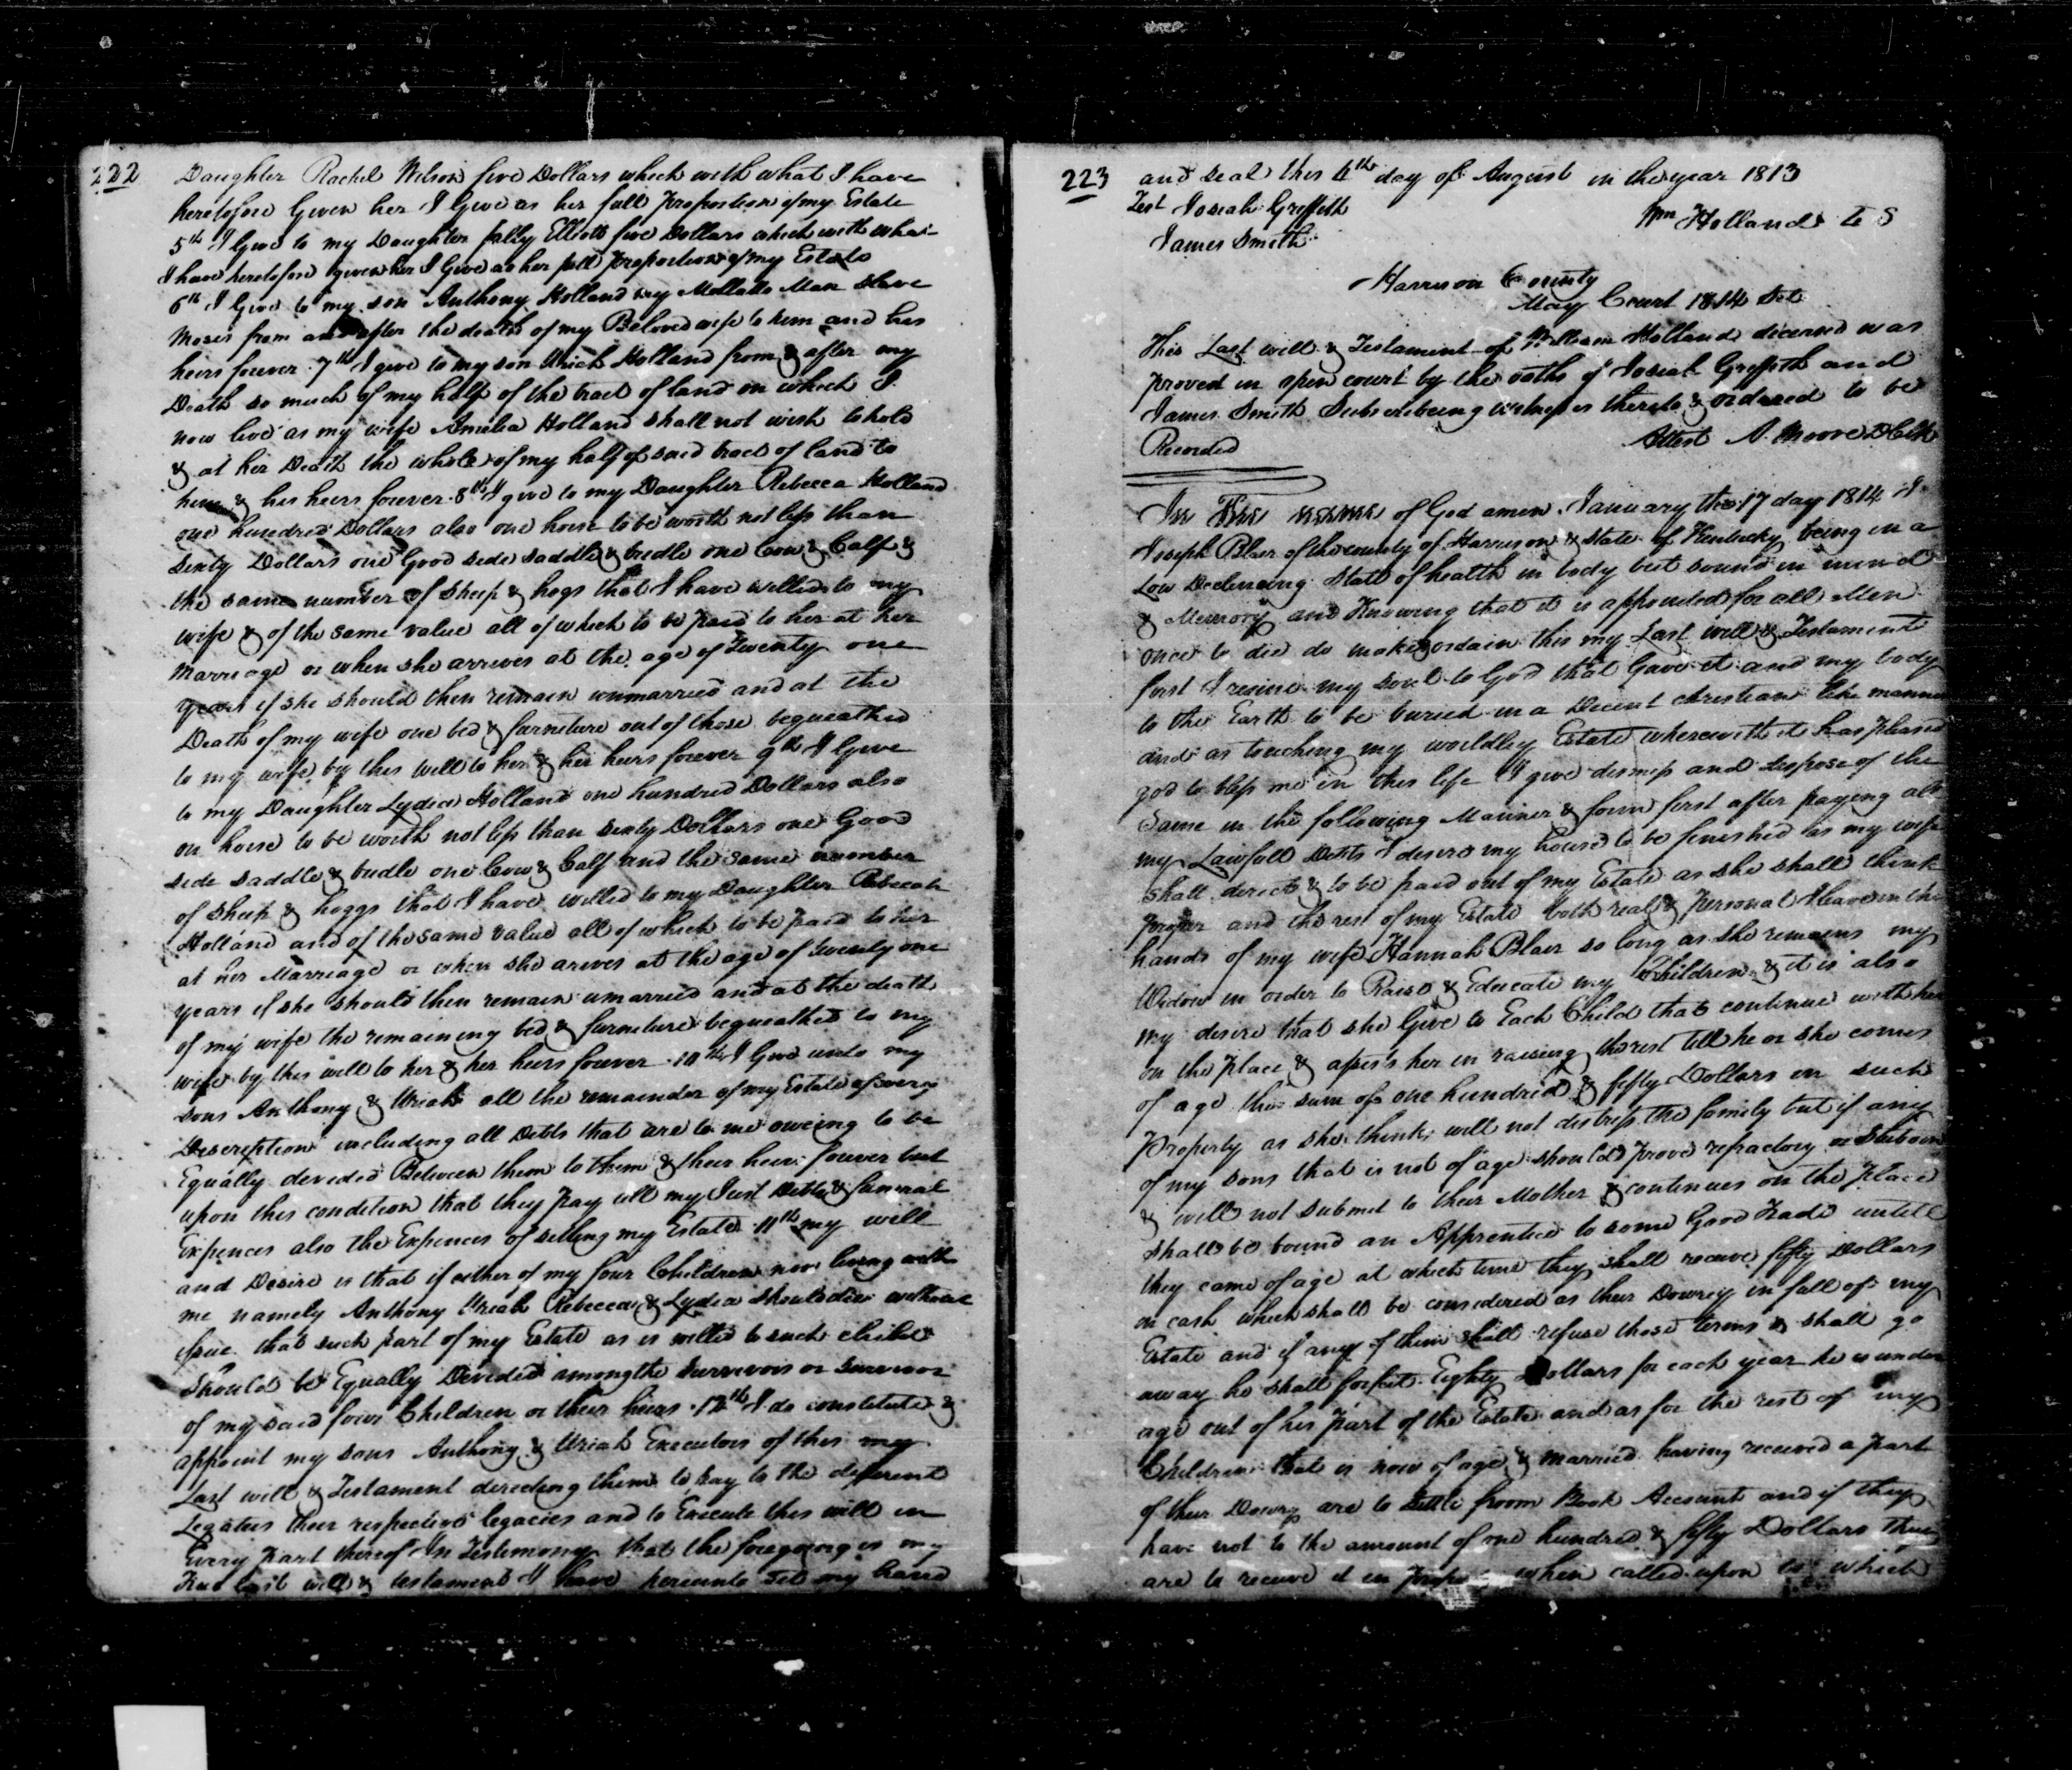 222
Daughter Rachel Wilson five Dollars which with what I have
heretofore Given her I Give as her full Proportion of my Estate
5th I Give to my Daughter Polly Elliott five Dollars which with what
I have heretofore given her I Give as her full proportion of my Estate
6th I Give to my son Anthony Holland my Mollatto Man Slave
Moses from and after the death of my Beloved wife to him and his
heirs forever. 7th I give to my son Uriah Holland from & after my
Death so much of my half of the tract of land on which I
now live as my wife Amelia Holland shall not wish to hold
& at her Death the whole of my half of said tract of land to
him & his heirs forever. 8th I give to my Daughter Rebecca Holland
one hundred Dollars also one horse to be worth not less than
sixty Dollars one Good side saddle & bridle one Cow & Calf &
the same number of sheep & hogs that I have willed to my
wife & of the same value all of which to be paid to her at her
Marriage or when she arrives at the age of Twenty one
years if she should then remain unmarried and at the
Death of my wife one bed & furniture out of those bequeathed
to my wife by this will to her & her heirs forever 9th I Give
to my Daughter Lydia Holland one hundred Dollars also
on horse to be worth not less than sixty Dollars one Good
side saddle & bridle one Cow & Calf and the same number
of sheep & hoggs that I have willed to my Daughter Rebecah
Holland and of the same value all of which to be paid to her
at her Marriage or when she arives at the age of twenty one
years if she should then remain umarried and at the death
of my wife the remaining bed & furniture bequeathed to my
wife by this will to her & her heirs forever. 10th I Give unto my
sons Anthony & Uriah all the remainder of my Estate of every
Description including all Debts that are to me oweing to be
Equally devided Between them to them & their heirs forever but
upon this condition that they pay all my Just Debts & funeral
Expences also the Expences of selling my Estate. 11th my will
and Desire is that if either of my four Children now living with
me namely Anthony Uriah Rebecca & Lydia should die without
Issue that such part of my Estate as is willed to such child
should be Equally Devided among the survivors or survivor
of my said four Children or their heirs. 12th I do constitute &
appoint my sons Anthony & Uriah Executors of this my
Last will & Testament directing them to pay to the different
Legatees their respective legacies and to Execute this will in
Every part thereof In Testimony that the foregoing is my
True last will & testament I have hereunto set my hand
223
and seal this 4th day of August in the year 1813
Test Josiah Griffith
Wm Holland
James Smith
Harrison County
May Court 1814 Sct
This Last will & Testament of William Holland deceased was
proved in open court by the oaths of Josiah Griffith and
James Smith Subscribeing witnesses thereto & ordered to be
Recorded
Attest A. Moore DClk
In The name of God amen. January the 17 day 1814 I
Joseph Blair of the county of Harrison & State of Kentucky being in a
Low Declineing State of health in body but sound in mind
& Memory and Knowing that it is appointed for all Men
once to die do make & ordain this my Last will & Testament
first I resine my soul to God that Gave it and my body
to the Earth to be buried in a Decent christian like manner
and as touching my worldley Estate wherewith it has pleased
god to bless me in this life I give demiss and dispose of the
Same in the following Manner & form first after paying all
my Lawfull Debts I desire my house to be finished as my wife
shall direct & to be paid out of my Estate as she shall think
proper and the rest of my Estate both real & personal I leave in the
hands of my wife Hannah Blair so long as she remains my
Widow in order to Raise & Educate my Children & it is also
my desire that she Give to Each Child that continue with her
on the place & assis's her in raising the rest till he or she comes
of age the sum of one hundred & fifty Dollars in such
Property as she thinks will not distress the family but if any
of my sons that is not of age should prove refractory or Stuborn
& will not submit to their Mother & continues on the place
shall be bound an Apprentice to some Good Trade untill
they came of age at which time they shall receive fifty Dollars
in cash which shall be considered as their Dowrey in full of my
Estate and if any of them shall refuse those terms & shall go
away he shall forfeit Eighty Dollars for each year he is under
age out of his part of the Estate and as for the rest of my
Children that is now of age & married having received a part
of their Dowry are to settle from Book Account and if they
have not to the amount of one hundred & fifty Dollars they
are to receive it in when called upon to which